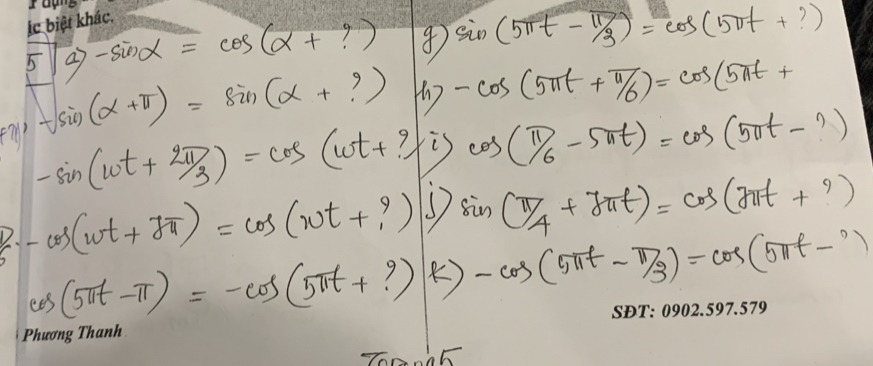 ặc biệt khác.
5 a) -sinα = cos(α + ?)
-sin(α+π) = sin(α + ?)
-sin(wt + 2π/3) = cos(wt + ?)
-cos(wt + 7π) = cos(wt + ?)
cos(5πt - π) = -cos(5πt + ?)
Phương Thanh
g) sin(5πt - π/3) = cos(5πt + ?)
h) -cos(5πt + π/6) = cos(5πt +
i) cos(π/6 - 5πt) = cos(5πt - ?)
j) sin(π/4 + 7πt) = cos(7πt + ?)
k) -cos(5πt - π/3) = cos(5πt - ?)
SĐT: 0902.597.579